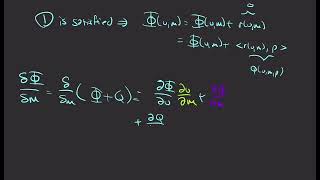 ① is satisfied ⇒ Φ(u,m) = Φ(u,m) + r(u,m)
0
= Φ(u,m) + <r(u,m), p>
Q(u,m,p)
δΦ/δm = δ/δm (Φ+Q) = ∂Φ/∂u ∂u/∂m +
+ ∂Q